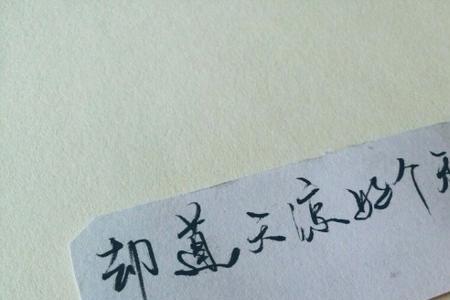 却道天凉好个